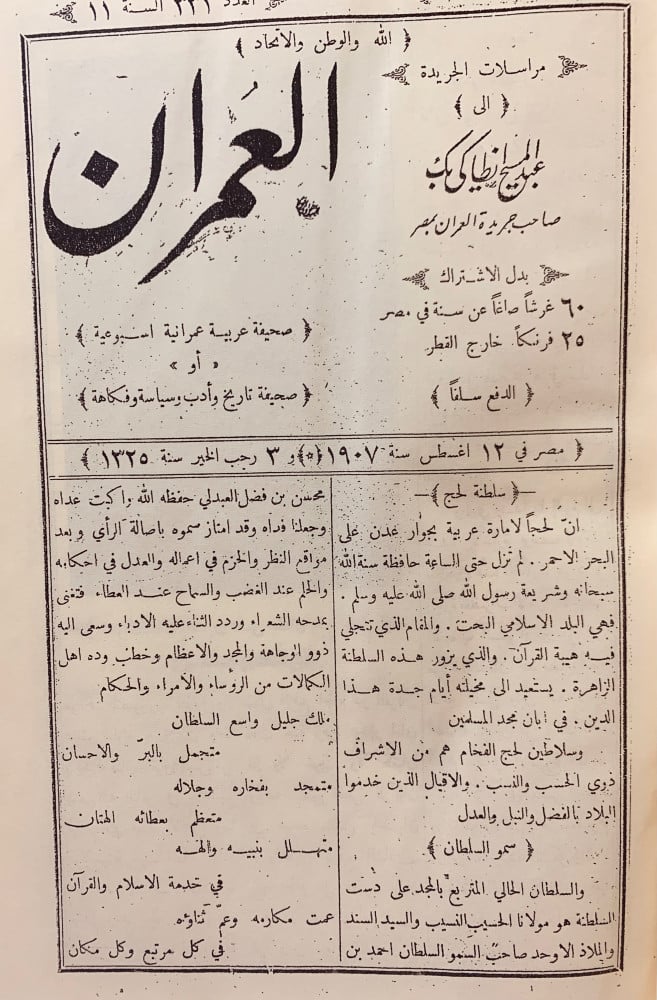 العدد ٣٣١ السنة ١١
﴿ الله والوطن والاتحاد ﴾
العمران
مراسلات الجريدة
﴿ الى ﴾
عبد المسيح انطاكي بك
صاحب جريدة العمران بمصر
بدل الاشتراك
٦٠ غرشاً صاغاً عن سنة في مصر
٢٥ فرنكاً خارج القطر
﴿ الدفع سلفاً ﴾
﴿ صحيفة عربية عمرانية اسبوعية ﴾
« أو »
﴿ صحيفة تاريخ وأدب وسياسة وفكاهة ﴾
﴿ مصر في ١٢ اغسطس سنة ١٩٠٧ ﴾(*)﴿ و ٣ رجب الخير سنة ١٣٢٥ ﴾
—﴿ سلطنة لحج ﴾—
انّ لحجاً لامارة عربية بجوار عدن على
البحر الاحمر . لم تزل حتى الساعة حافظة سنة الله
سبحانه وشريعة رسول الله صلى الله عليه وسلم .
فهي البلد الاسلامي البحت . والمقام الذي تتجلي
فيه هيبة القرآن . والذي يزور هذه السلطنة
الزاهرة . يستعيد الى مخيلته أيام جدة هذا
الدين . في ابان مجد المسلمين
وسلاطين لحج الفخام هم من الاشراف
ذوي الحسب والنسب . والاقيال الذين خدموا
البلاد بالفضل والنبل والعدل
﴿ سمو السلطان ﴾
والسلطان الحالي المتربع بالمجد على دست
السلطنة هو مولانا الحسيب النسيب والسيد السند
والملاذ الاوحد صاحب السمو السلطان احمد بن
محسن بن فضل العبدلي حفظه الله واكبت عداه
وجعلنا فداه وقد امتاز سموه باصالة الرأي وبعد
مواقع النظر والحزم في اعماله والعدل في احكامه
والحلم عند الغضب والسماح عند العطاء فتغنى
بمدحه الشعراء وردد الثناء عليه الادباء وسعى اليه
ذوو الوجاهة والمجد والاعظام وخطب وده اهل
الكمالات من الرؤساء والأمراء والحكام
ملك جليل واسع السلطان
متجمل بالبرّ والاحسان
متمجد بفخاره وجلاله
متعظم بعطائه الهتان
متهلل بنبيه والهه
في خدمة الاسلام والقرآن
عمت مكارمه وعمّ ثناؤه
في كل مرتبع وكل مكان